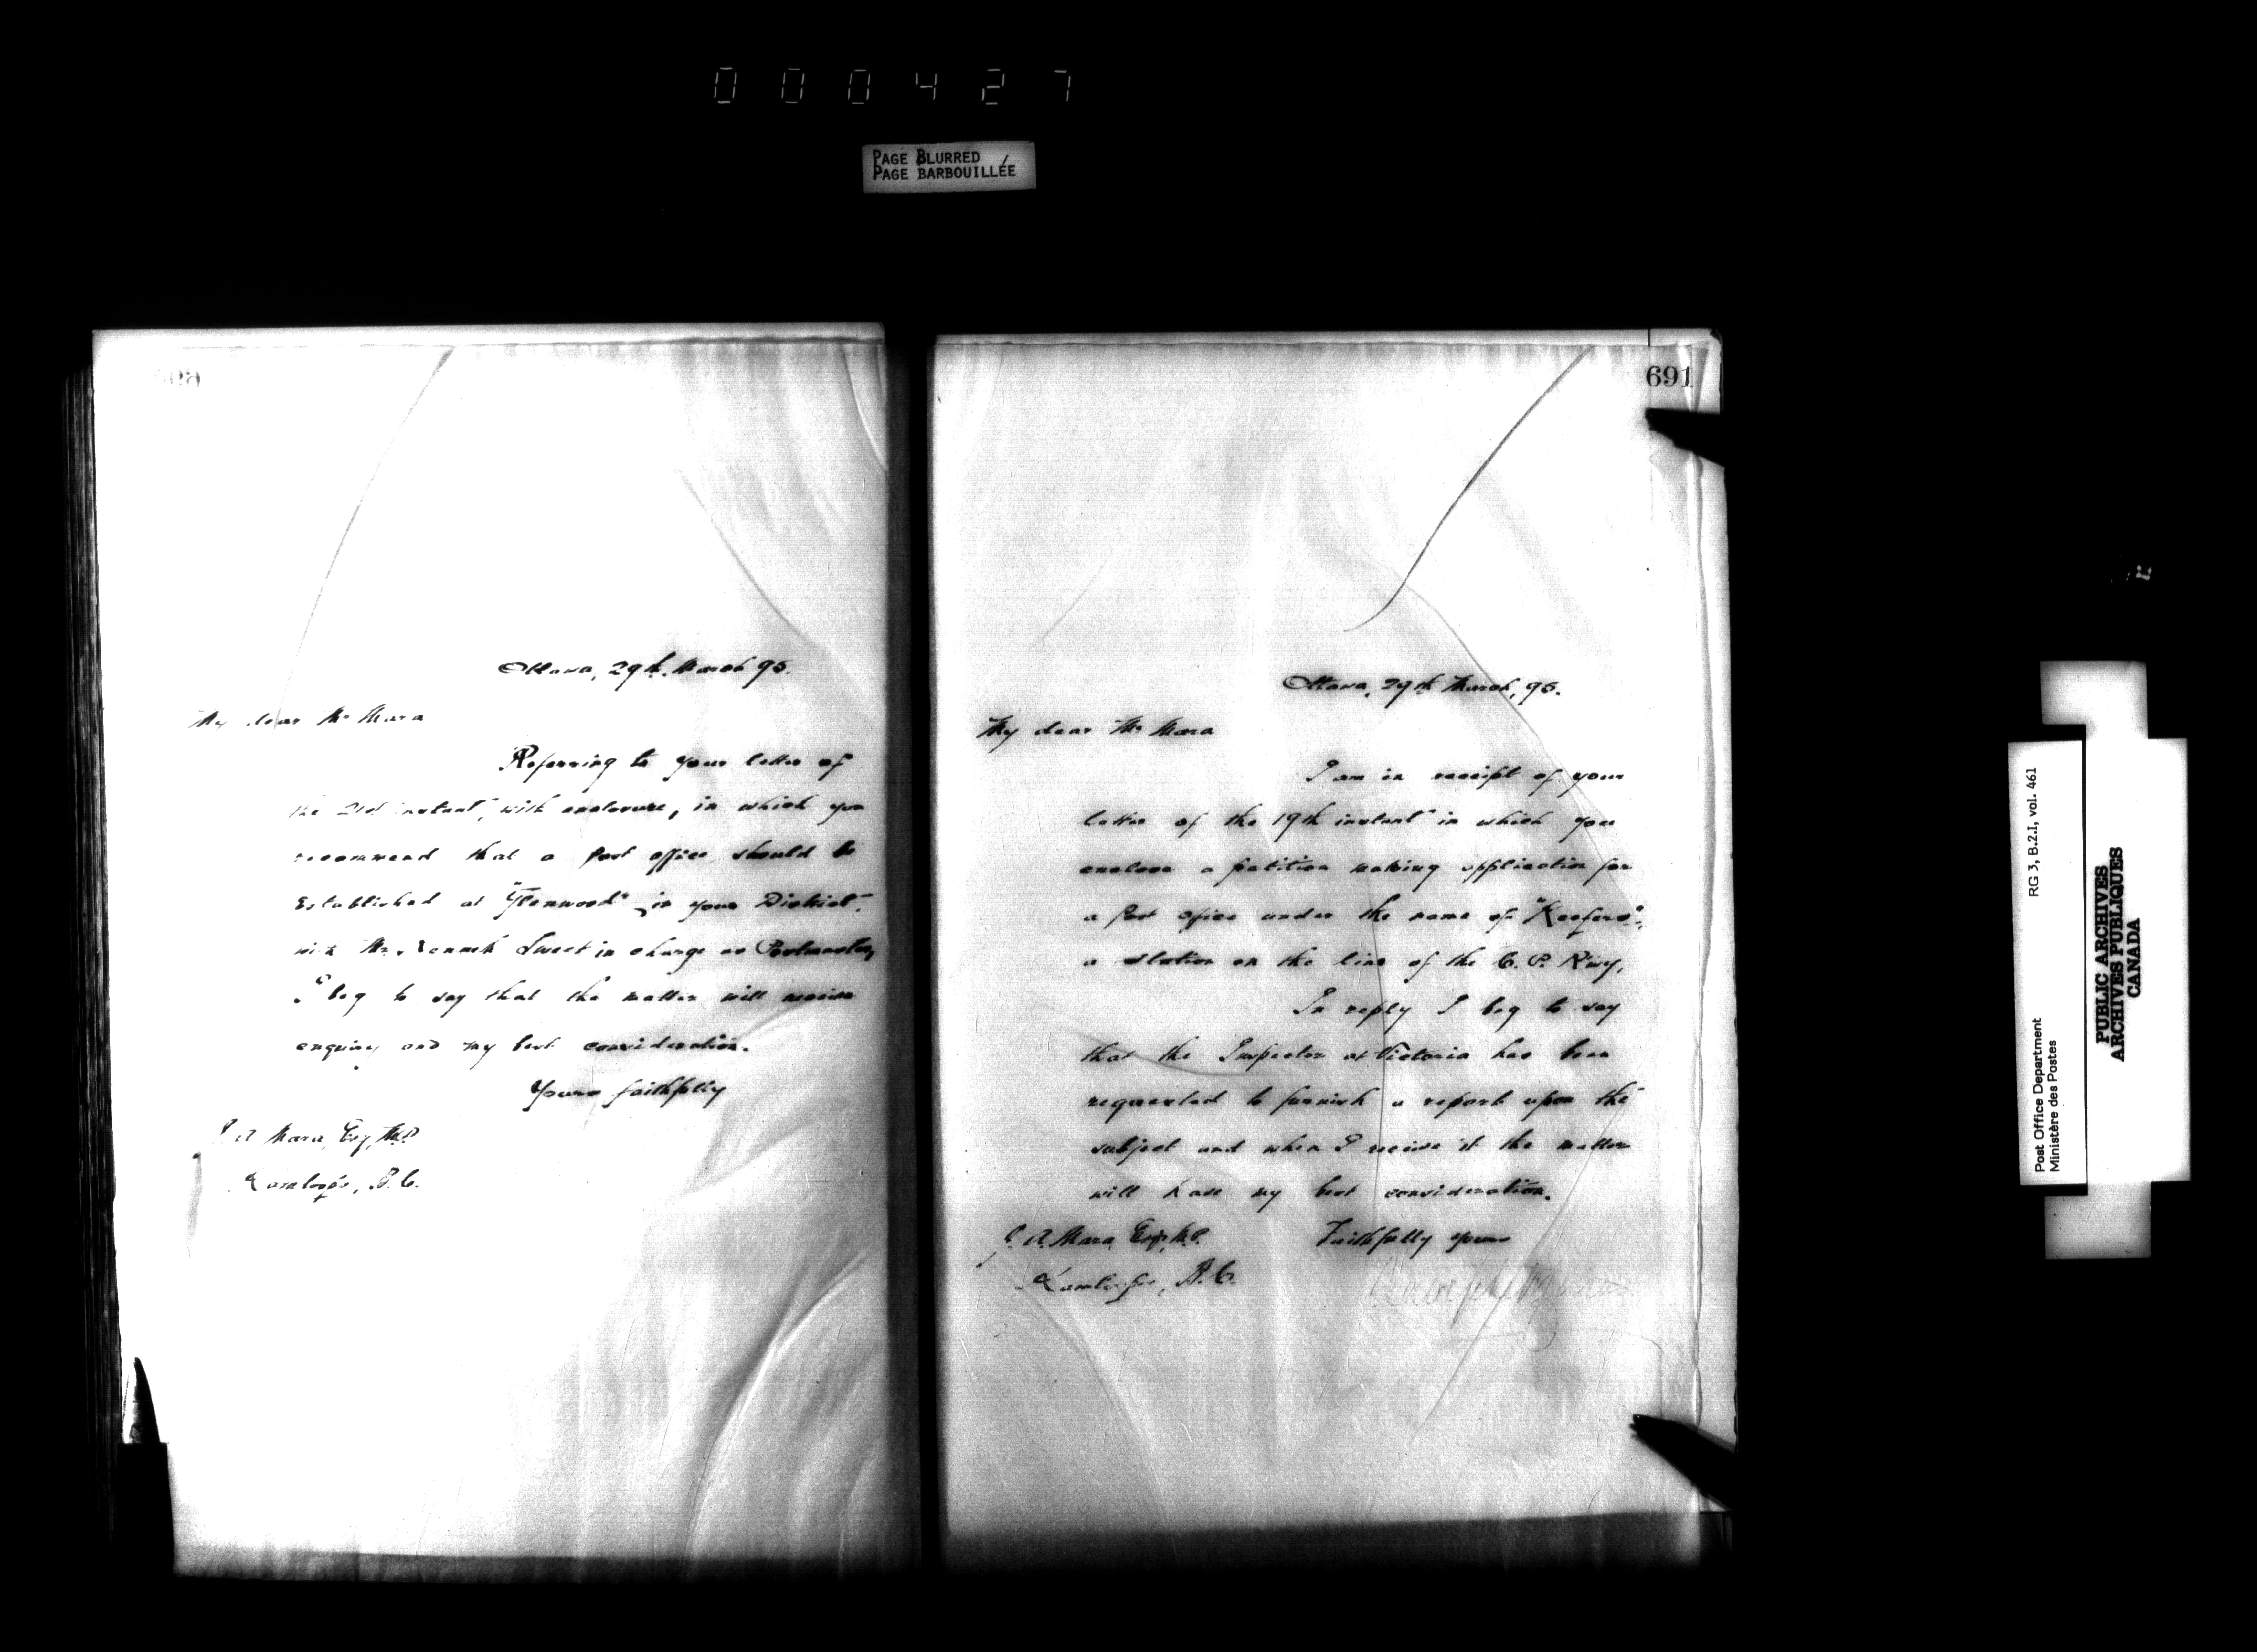 000427
PAGE BLURRED
PAGE BARBOUILLÉE
Ottawa, 29th. March 95.
My dear Mr Mara
Referring to your letter of
the 21st instant, with enclosure, in which you
recommend that a Post office should be
established at "Glenwood" in your District,
with Mr. Kenneth Sweet in charge as Postmaster,
I beg to say that the matter will receive
enquiry and my best consideration.
Yours faithfully
J. A. Mara, Esq, M.P.
Kamloops, B.C.
691
Ottawa, 29th March, 95.
My dear Mr Mara
I am in receipt of your
letter of the 19th instant in which you
enclose a petition making application for
a Post office under the name of "Keefers",
a station on the line of the C. P. R'wy,
In reply I beg to say
that the Inspector at Victoria has been
requested to furnish a report upon the
subject and when I receive it the matter
will have my best consideration.
Faithfully yours
J. A. Mara, Esq, M.P.
Kamloops, B.C.
RG 3, B.2.I, vol. 461
Post Office Department
Ministère des Postes
PUBLIC ARCHIVES
ARCHIVES PUBLIQUES
CANADA